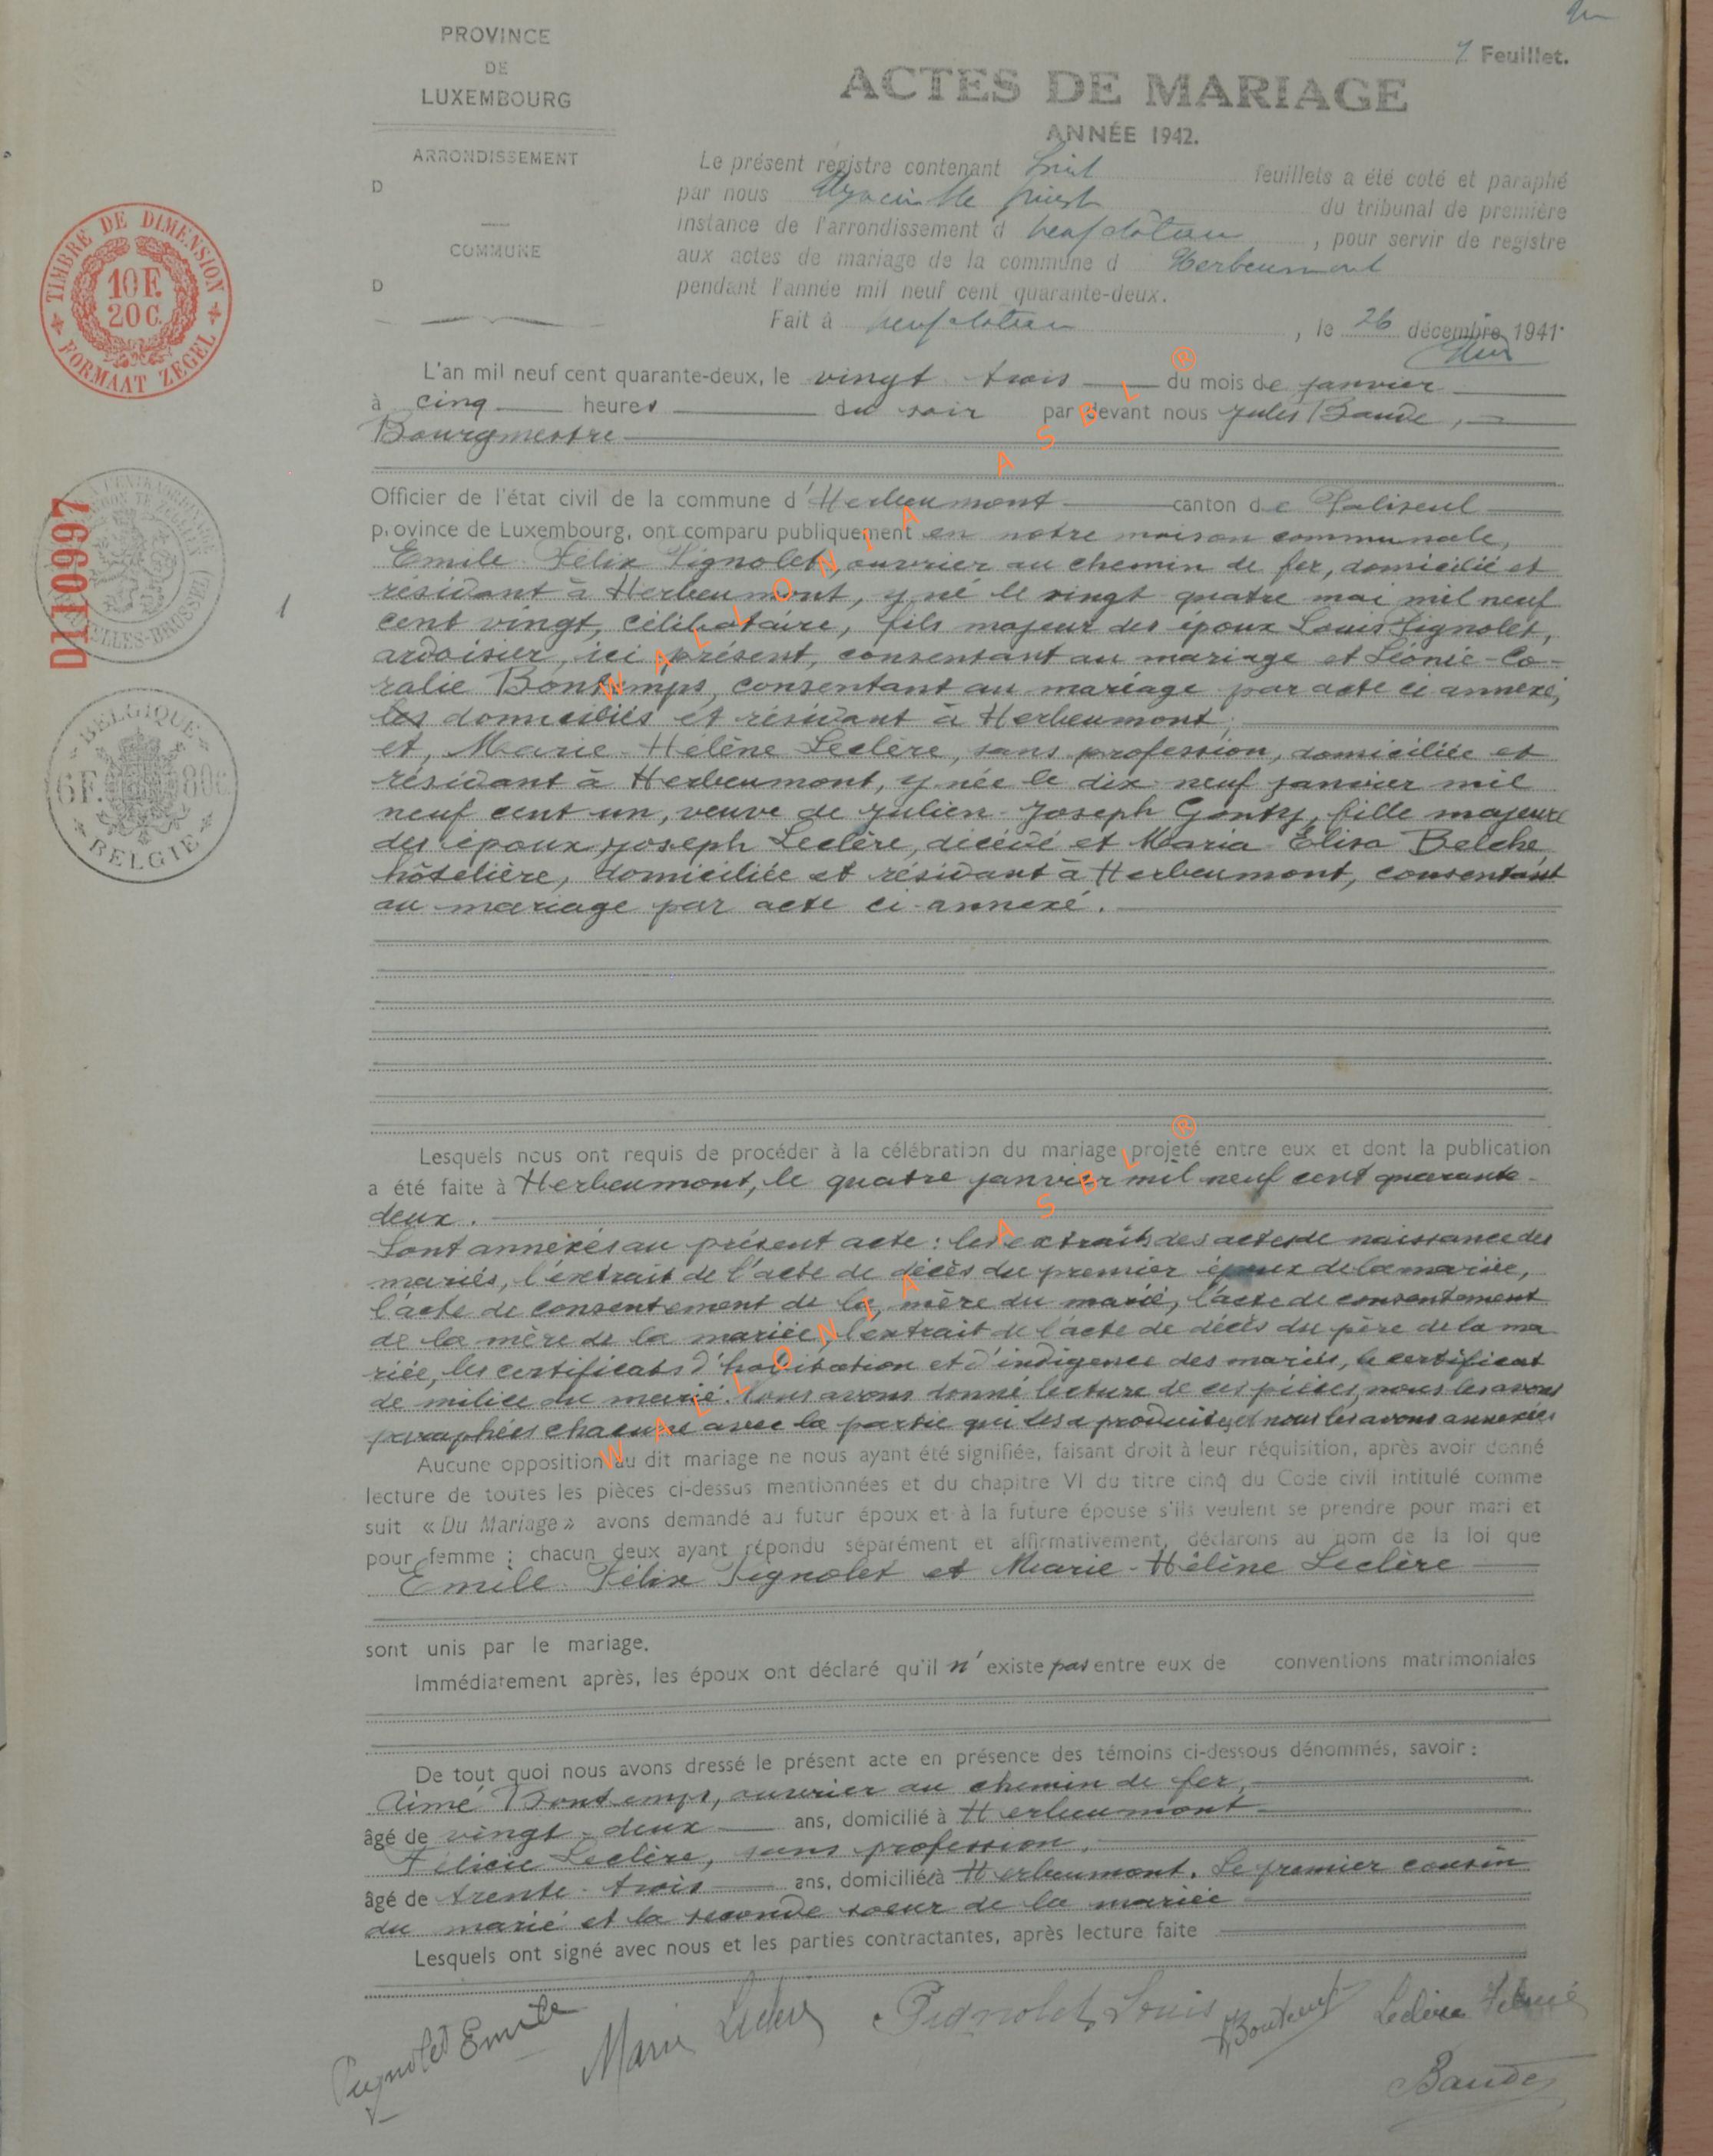 PROVINCE
DE
LUXEMBOURG
ARRONDISSEMENT
D
COMMUNE
D
Feuillet.
ACTES DE MARIAGE
ANNÉE 1942.
Le présent régistre contenant huit feuillets a été coté et paraphé
par nous du tribunal de première
instance de l'arrondissement d Neufchâteau , pour servir de registre
aux actes de mariage de la commune d Herbeumont
pendant l'année mil neuf cent quarante-deux.
Fait à Neufchâteau , le 26 décembre 1941.
TIMBRE DE DIMENSION
10 F.
20 C.
FORMAAT ZEGEL
D110997
BELGIQUE
6F. 80c
BELGIE
1
L'an mil neuf cent quarante-deux, le vingt trois du mois de janvier
à cinq heures du soir par devant nous Jules Baude,
Bourgmestre
Officier de l'état civil de la commune d'Herbeumont canton de Paliseul
province de Luxembourg, ont comparu publiquement en notre maison communale,
Emile-Félix Pignolet, ouvrier au chemin de fer, domicilié et
résidant à Herbeumont, y né le vingt quatre mai mil neuf
cent vingt, célibataire, fils majeur des époux Louis Pignolet,
ardoisier, ici présent, consentant au mariage et Léonie-Co-
ralie Bontemps, consentant au mariage par acte ci annexé,
les domiciliés et résidant à Herbeumont;
et, Marie-Hélène Leclère, sans profession, domiciliée et
résidant à Herbeumont, y née le dix-neuf janvier mil
neuf cent un, veuve de Julien-Joseph Gonty, fille majeure
des époux Joseph Leclère, décédé et Maria-Elisa Belche,
hôtelière, domiciliée et résidant à Herbeumont, consentant
au mariage par acte ci-annexé.
Lesquels nous ont requis de procéder à la célébration du mariage projeté entre eux et dont la publication
a été faite à Herbeumont, le quatre janvier mil neuf cent quarante-
deux.
Sont annexés au présent acte: les extraits des actes de naissance des
mariés, l'extrait de l'acte de décès du premier époux de la mariée,
l'acte de consentement de la mère du marié, l'acte de consentement
de la mère de la mariée, l'extrait de l'acte de décès du père de la ma
riée, les certificats d'habitation et d'indigence des mariés, le certificat
de milice du marié. Nous avons donné lecture de ces pièces, nous les avons
paraphées chacune avec la partie qui les a produites, et nous les avons annexées
Aucune opposition au dit mariage ne nous ayant été signifiée, faisant droit à leur réquisition, après avoir donné
lecture de toutes les pièces ci-dessus mentionnées et du chapitre VI du titre cinq du Code civil intitulé comme
suit « Du Mariage » avons demandé au futur époux et à la future épouse s'ils veulent se prendre pour mari et
pour femme : chacun deux ayant répondu séparément et affirmativement, déclarons au nom de la loi que
Emile-Félix Pignolet et Marie-Hélène Leclère
sont unis par le mariage.
Immédiatement après, les époux ont déclaré qu'il n'existe pas entre eux de conventions matrimoniales
De tout quoi nous avons dressé le présent acte en présence des témoins ci-dessous dénommés, savoir :
Aimé Bontemps, ouvrier au chemin de fer,
âgé de vingt-deux ans, domicilié à Herbeumont
Félicie Leclère, sans profession,
âgé de trente-trois ans, domiciliéà Herbeumont. Le premier cousin
du marié et la seconde soeur de la mariée
Lesquels ont signé avec nous et les parties contractantes, après lecture faite
Pignolet Emile
Marie Leclère
Pignolet Louis
ABontemps
Leclère Félicie
Baude
WALLONIA ASBL ®
WALLONIA ASBL ®